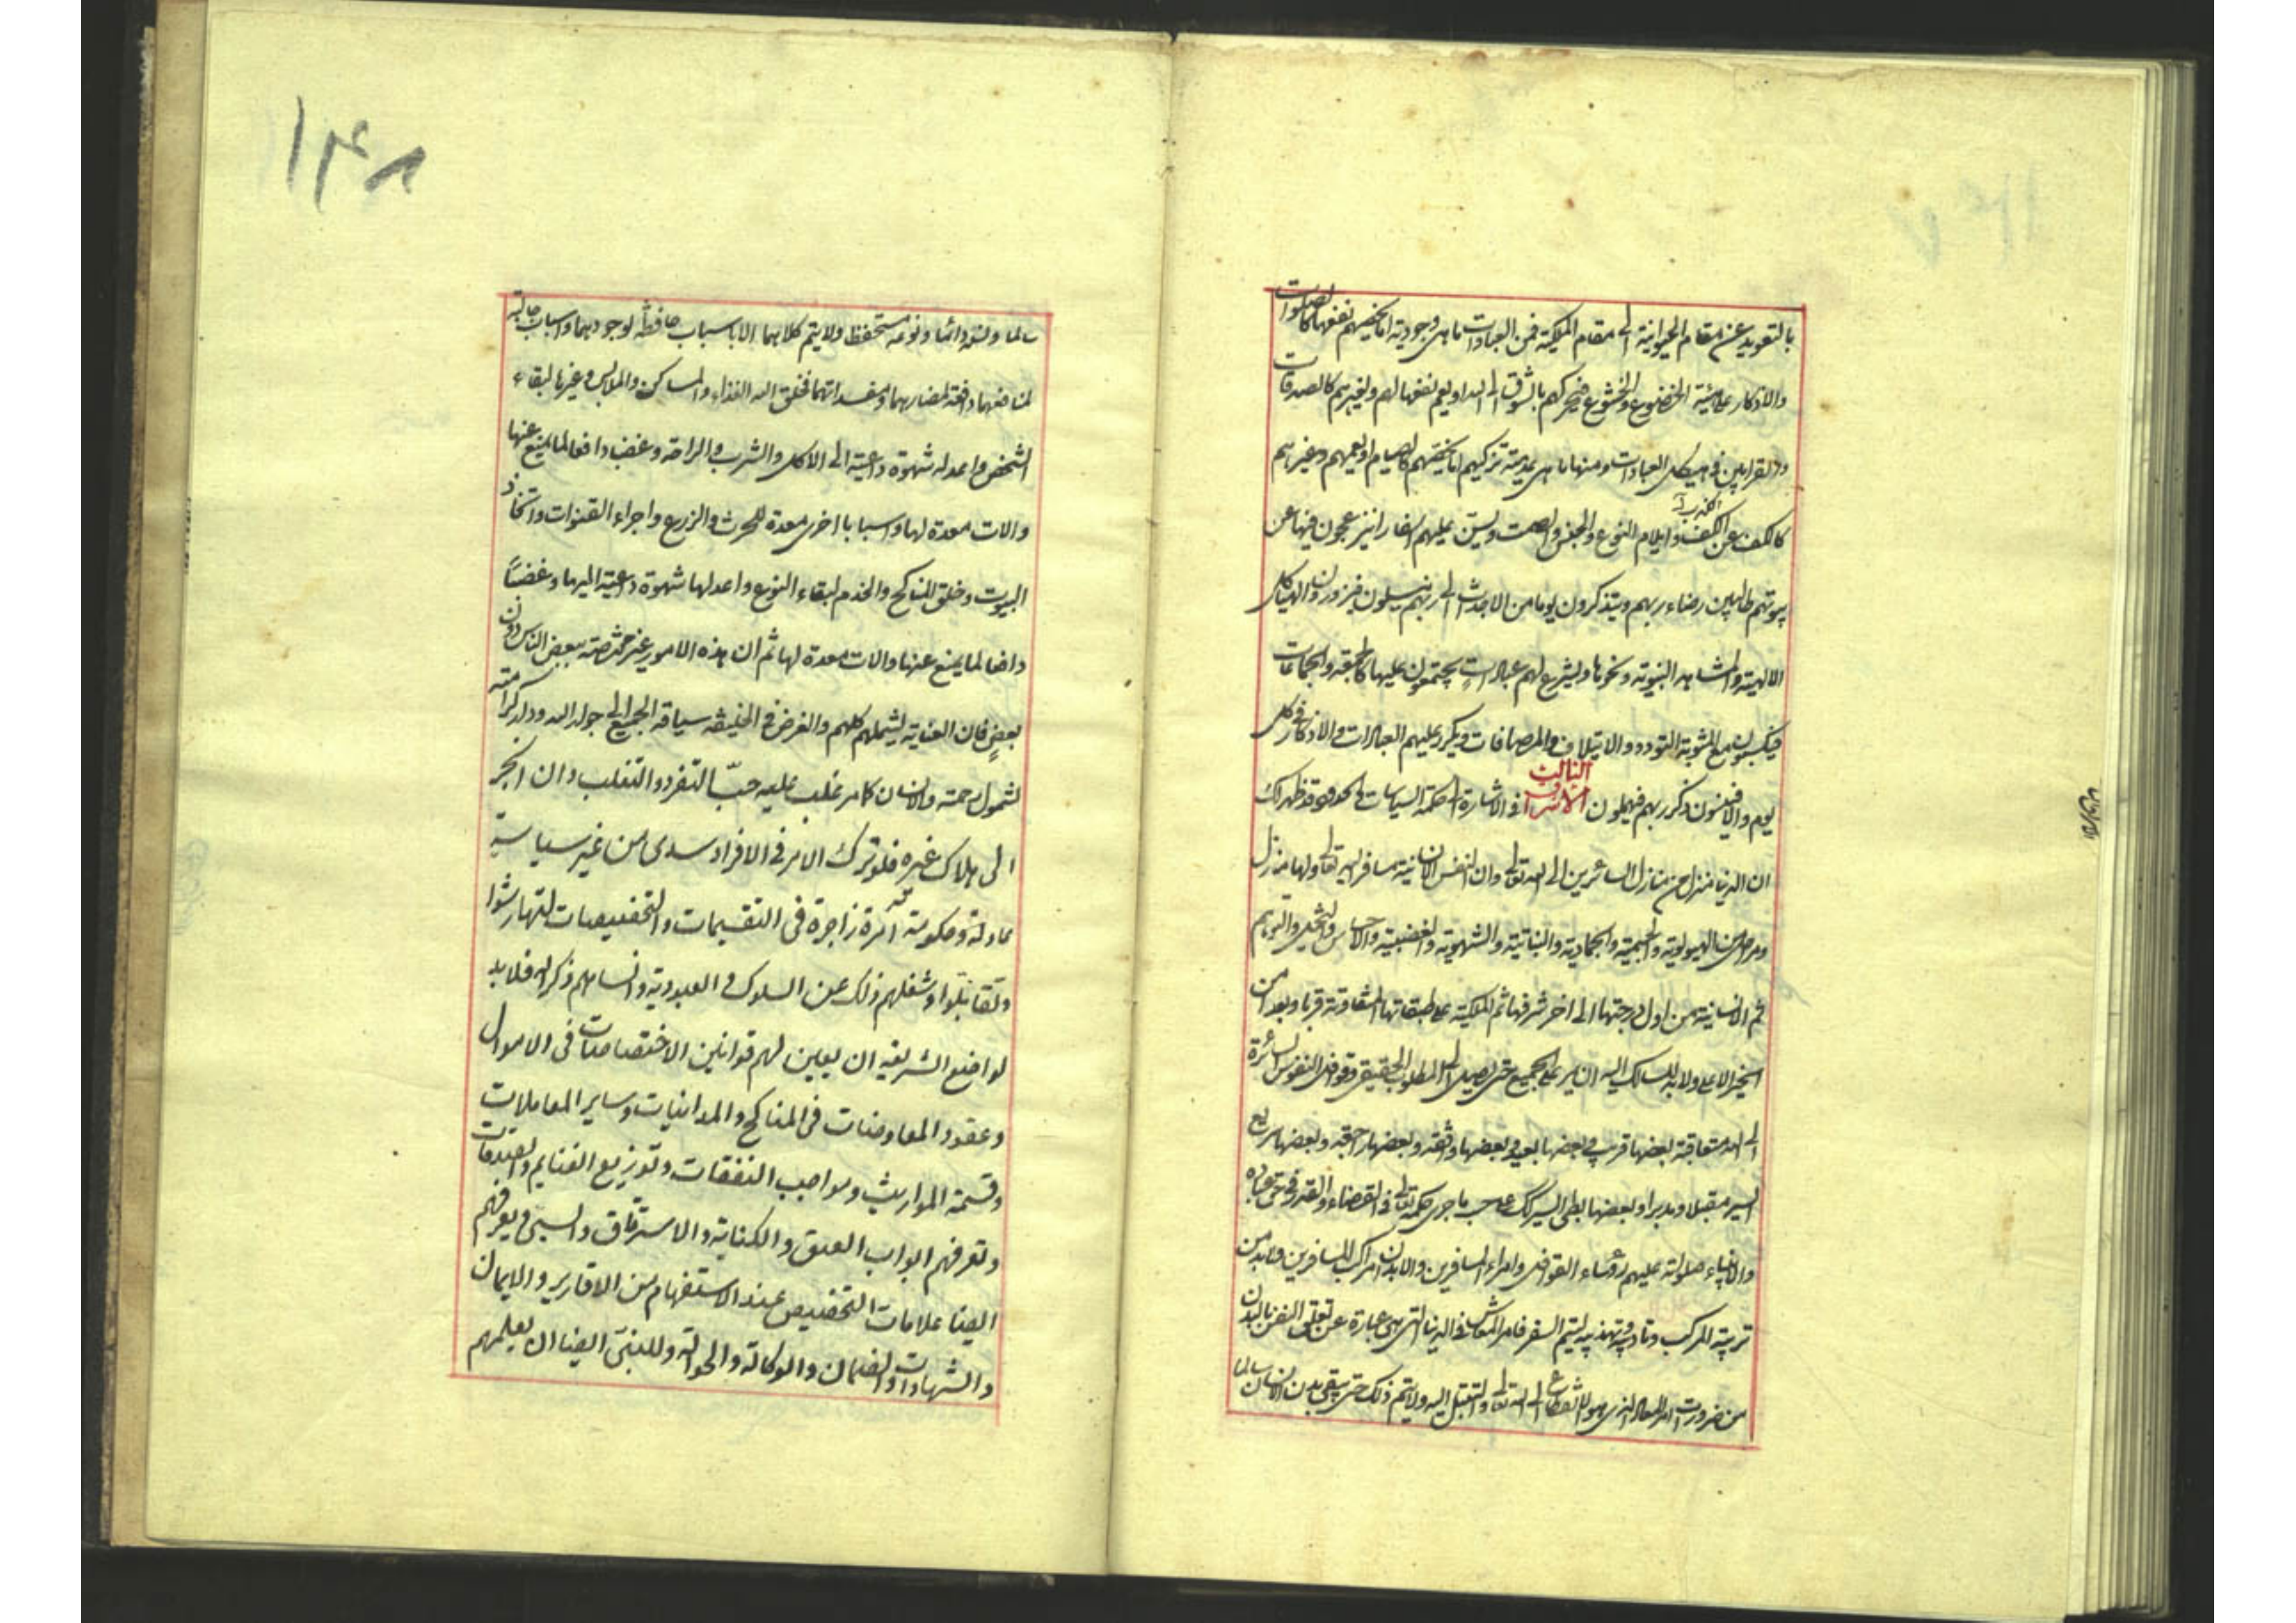 بالتعويد عن مقام الحيوانية الى مقام الملكية فمن العبادات ما هى وجودية اما يخصهم نفعها كالصلوات
والاذكار على هيئة الخضوع والخشوع فيحركهم بالشوق الى الله او يعم نفعها لهم ولغيرهم كالصدقات
والقرابين فى هيكل العبادات ومنها ما هى عدمية تزكيهم اما يخصهم كالصيام او يعمهم وغيرهم
كالكف عن الكذب وايلام النوع والجنس والصمت ويسن عليهم اسفارا ينزعجون فيها عن
بيوتهم طالبين رضاء ربهم ويتذكرون يوما من الاجداث الى ربهم ينسلون فيزورون الهياكل
الالهية والمشاهد النبوية ونحوها ويشرع لهم عبادات يجتمعون عليها كالجمعة والجماعات
فيكسبون مع المثوبة التودد والايتلاف والمصافات ويكرر عليهم العبادات والاذكار فى كل
يوم والا فينسون ذكر ربهم فيهملون الاشراق الثالث فى الاشارة الى حكمة السياسات والحدود قد ظهر لك
ان الدنيا منزل من منازل السائرين الى الله تعالى وان النفس الانسانية مسافر اليه تعالى ولها منازل
ومراحل من الهيولوية والجسمية والجمادية والنباتية والشهوية والغضبية والاحساس والتخيل والتوهم
ثم الانسانية من اول درجتها الى اخر شرفها ثم الملكية على طبقاتها المتفاوتة قربا وبعدا من
الخير الاعلى ولا بد للسالك اليه ان يمر على الجميع حتى يصل الى المطلوب الحقيقى وقوافل النفوس السائرة
الى الله متعاقبة بعضها قريب وبعضها بعيد وبعضها واقفة وبعضها راجعة وبعضها سريع
السير مقبلا ومدبرا وبعضها بطئ السير كل على حسب ما جرى حكمه تعالى فى القضاء والقدر فى حق عباده
والانبياء صلوات عليهم رؤساء القوافل وامراء المسافرين والابدان مراكب المسافرين ولا بد من
تربية المركب وتاديبه وتهذيبه ليتم السفر فامر المعاش فى الدنيا التى هى عبارة عن تعلق النفس بالبدن
من ضرورات امر المعاد الذى هو الانقطاع الى الله تعالى والتبتل اليه ولا يتم ذلك حتى يبقى بدن الانسان سالما
١٢٤٨
سالما ونسله دائما ونوعه مستحفظا ولا يتم كلاهما الا باسباب حافظة لوجودهما واسباب جالبة
لمنافعهما دافعة لمضارهما ومفسداتهما فخلق الله الغذاء والمساكن والملابس وغيرها لبقاء
الشخص واعد له شهوة داعية الى الاكل والشرب والراحة وغضبا دافعا لما يمنع عنها
والات معدة لها واسبابا اخرى معدة للحرث والزرع واجراء القنوات واتخاذ
البيوت وخلق المناكح والخدم لبقاء النوع واعد لها شهوة داعية اليها وغضبا
دافعا لما يمنع عنها والات معدة لها ثم ان هذه الامور غير مختصة ببعض الناس دون
بعض فان العناية يشملهم كلهم والغرض فى الخليقة سياقة الجميع الى جوار الله ودار كرامته
لشمول رحمته والانسان كما مر غلب عليه حب التفرد والتغلب وان انجر
الى هلاك غيره فلو ترك الامر فى الافراد سدى من غير سياسة
عادلة وحكومة امرة زاجرة فى التقسيمات والتخصيصات لتهارشوا
وتقاتلوا وشغلهم ذلك عن السلوك والعبودية وانساهم ذكر الله فلا بد
لواضع الشريعة ان يعين لهم قوانين الاختصاصات فى الاموال
وعقود المعاوضات فى المناكح والمداينات وساير المعاملات
وقسمة المواريث ومواجب النفقات وتوزيع الغنايم والصدقات
وتعرفهم ابواب العتق والكتابة والاسترقاق والسبى ويعرفهم
ايضا علامات التخصيص عند الاستفهام من الاقارير والايمان
والشهادات والضمان والوكالة والحوالة وللنبى ايضا ان يعلمهم